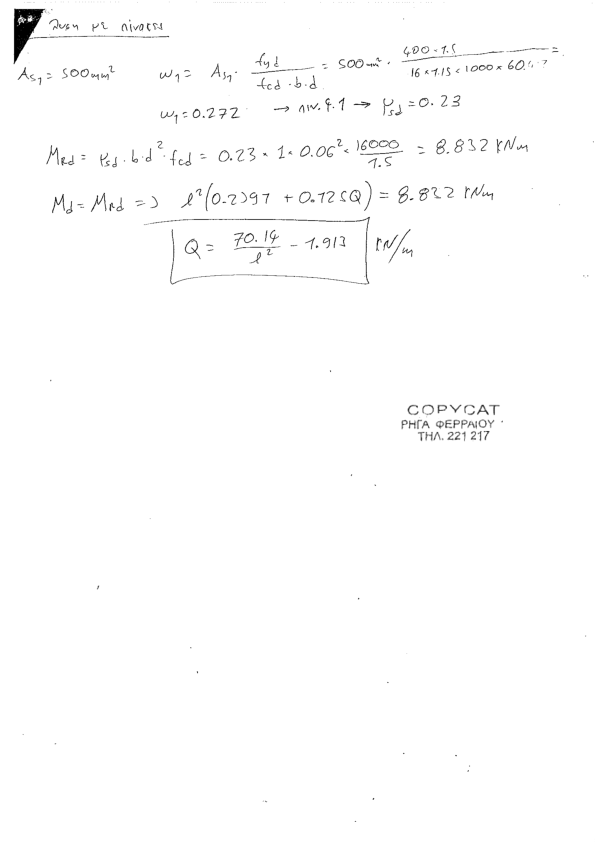 λυση με πίνακες
A_{s1} = 500 mm² ω_1 = A_{s1} · \frac{f_{yd}}{f_{cd} · b · d} = 500 mm² · \frac{400 × 1.5}{16 × 1.15 × 1000 × 60} =
ω_1 = 0.272 → πιν. 4.1 → μ_{sd} = 0.23
M_{Rd} = μ_{sd} · b · d² · f_{cd} = 0.23 × 1 × 0.06² × \frac{16000}{1.5} = 8.832 kNm
M_d = M_{Rd} => l²(0.2397 + 0.125Q) = 8.832 kNm
Q = \frac{70.14}{l²} - 1.913 kN/m
COPYCAT
ΡΗΓΑ ΦΕΡΡΑΙΟΥ
ΤΗΛ. 221 217